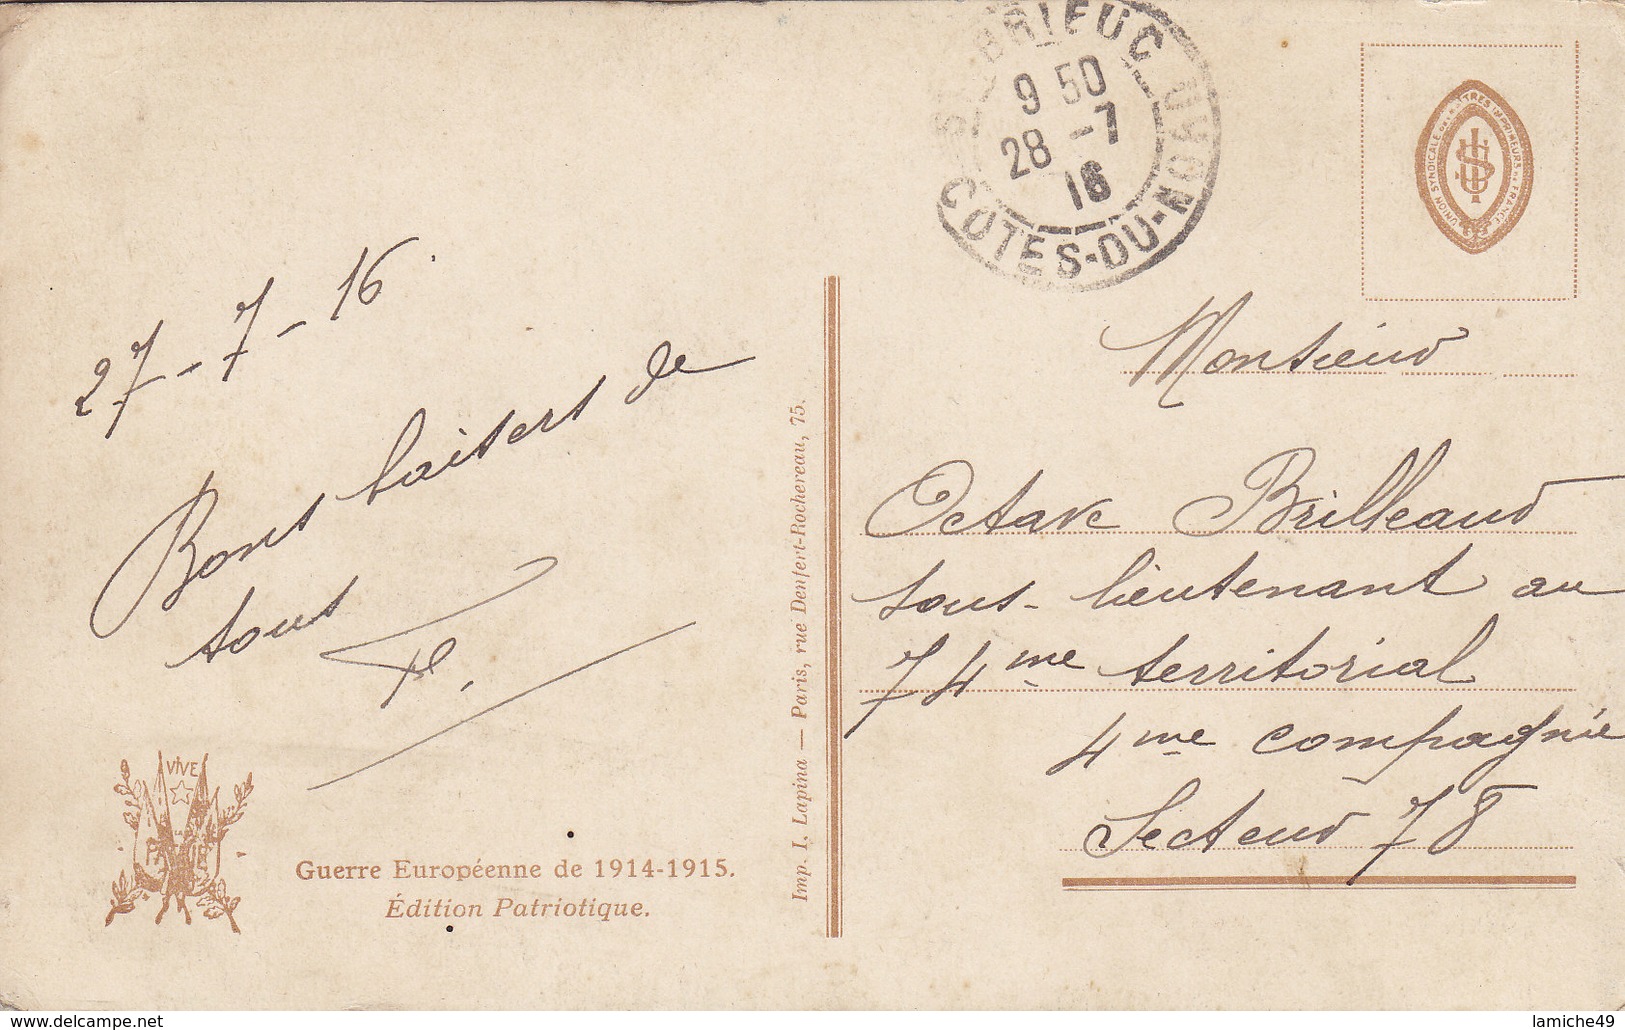 27-7-16.
Bons baisers de
tous
VIVE
LA
PATRIE
Guerre Européenne de 1914-1915.
Édition Patriotique.
Imp. I. Lapina — Paris, rue Denfert-Rochereau, 75.
ST BRIEUC
9 50
28 -7
16
COTES-DU-NORD
UNION SYNDICALE DES MAITRES IMPRIMEURS DE FRANCE
Monsieur
Octave Brilleaud
sous-lieutenant au
74me territorial
4me compagnie
Secteur 78
www.delcampe.net
lamiche49